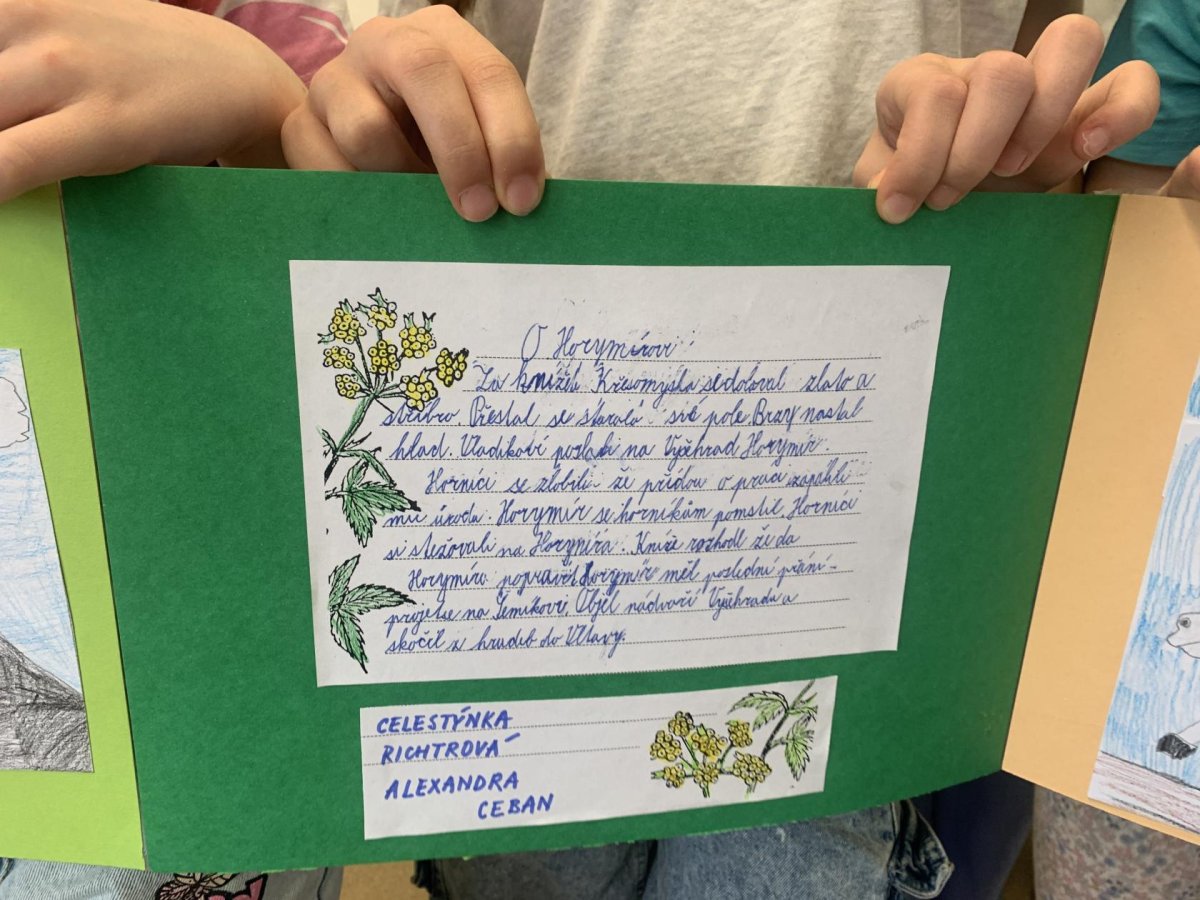 O Horymírovi
Za knížete Křesomysla se doloval zlato a
stříbro. Přestal se staralo své pole. Brzy nastal
hlad. Vladikové poslali na Vyšehrad Horymír.
Horníci se zlobili že přídou o praci zapálili
mu úrodu. Horymír se horníkům pomstil. Horníci
si stežovali na Horymíra. Kníže rozhodl že da
Horymíra popravit Horymír měl poslední přání -
projetse na Šemíkovi. Objel nádvoří Vyšehradu a
skočil z hradeb do Vltavy.
CELESTÝNKA
RICHTROVÁ
ALEXANDRA
CEBAN